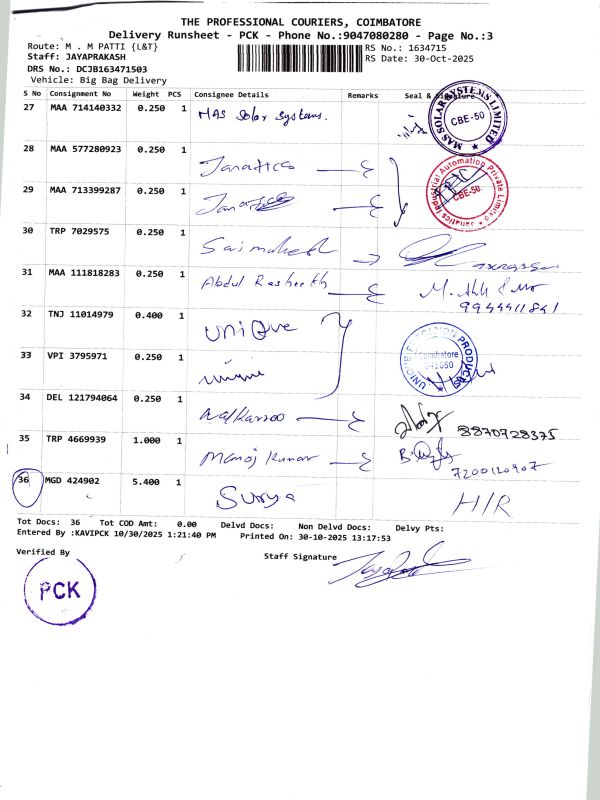 THE PROFESSIONAL COURIERS, COIMBATORE
Delivery Runsheet - PCK - Phone No.:9047080280 - Page No.:3
Route: M . M PATTI {L&T}
RS No.: 1634715
Staff: JAYAPRAKASH
RS Date: 30-Oct-2025
DRS No.: DCJB163471503
Vehicle: Big Bag Delivery
S No Consignment No Weight PCS Consignee Details Remarks Seal & Signature
27 MAA 714140332 0.250 1 MAS Solar Systems.
MAS SOLAR SYSTEMS LIMITED
CBE-50
28 MAA 577280923 0.250 1 Janatics
29 MAA 713399287 0.250 1 Janatics
Janatics Industrial Automation Private Limited
CBE-50.
30 TRP 7029575 0.250 1 Sai mukesh
31 MAA 111818283 0.250 1 Abdul Rasheeth
9944411841
32 TNJ 11014979 0.400 1 UNIQUE
33 VPI 3795971 0.250 1 unique
UNIQUE PRODUCTS
Coimbatore
641050
34 DEL 121794064 0.250 1 Walkaroo
8870728375
35 TRP 4669939 1.000 1 Manoj Kumar
7200120907
36 MGD 424902 5.400 1 Surya H/R
Tot Docs: 36 Tot COD Amt: 0.00 Delvd Docs: Non Delvd Docs: Delvy Pts:
Entered By :KAVIPCK 10/30/2025 1:21:40 PM Printed On: 30-10-2025 13:17:53
Verified By
Staff Signature
PCK